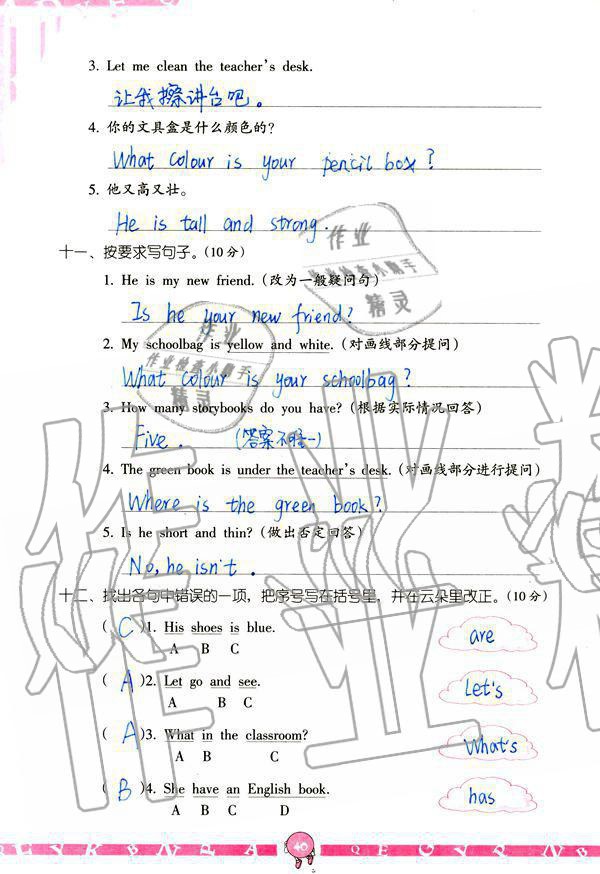 3. Let me clean the teacher's desk.
让我擦讲台吧。
4. 你的文具盒是什么颜色的?
What colour is your pencil box?
5. 他又高又壮。
He is tall and strong.
十一、按要求写句子。(10分)
1. He is my new friend. (改为一般疑问句)
Is he your new friend?
2. My schoolbag is yellow and white. (对画线部分提问)
What colour is your schoolbag?
3. How many storybooks do you have? (根据实际情况回答)
Five. (答案不唯一)
4. The green book is under the teacher's desk. (对画线部分进行提问)
Where is the green book?
5. Is he short and thin? (做出否定回答)
No, he isn't.
十二、找出各句中错误的一项,把序号写在括号里,并在云朵里改正。(10分)
( C )1. His shoes is blue. are
A B C
( A )2. Let go and see. Let's
A B C
( A )3. What in the classroom? What's
A B C
( B )4. She have an English book. has
A B C D
40
作业
作业检查小助手
精灵
作业
作业检查小助手
精灵
作业